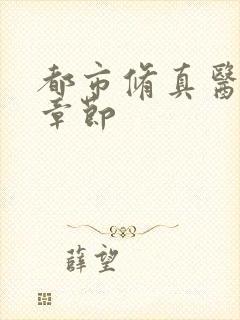 都市脩真醫
章節
薛望